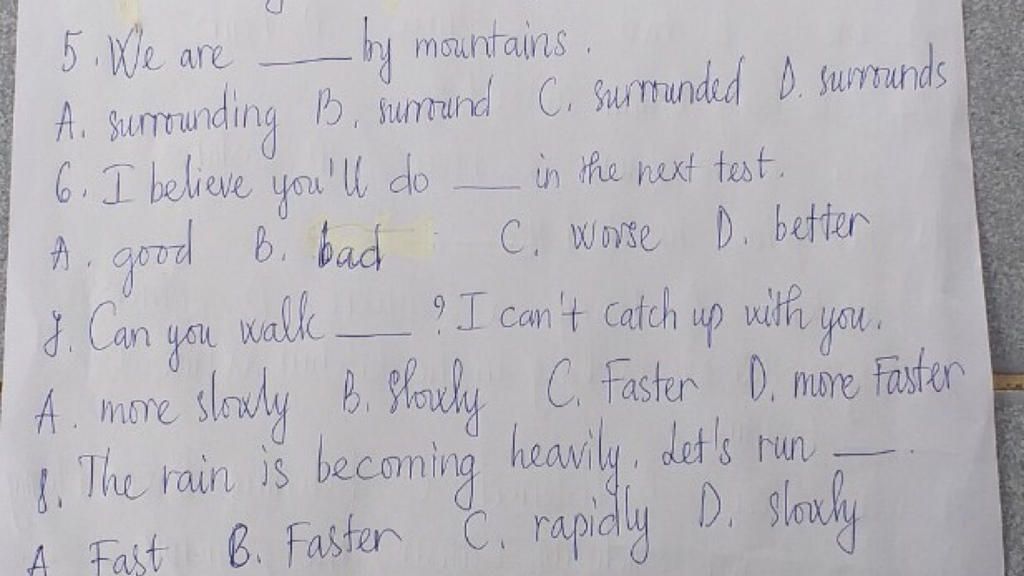 5. We are ___ by mountains.
A. surrounding B. surround C. surrounded D. surrounds
6. I believe you'll do ___ in the next test.
A. good B. bad C. worse D. better
7. Can you walk ___ ? I can't catch up with you.
A. more slowly B. Slowly C. Faster D. more Faster
8. The rain is becoming heavily. Let's run ___.
A Fast B. Faster C. rapidly D. slowly